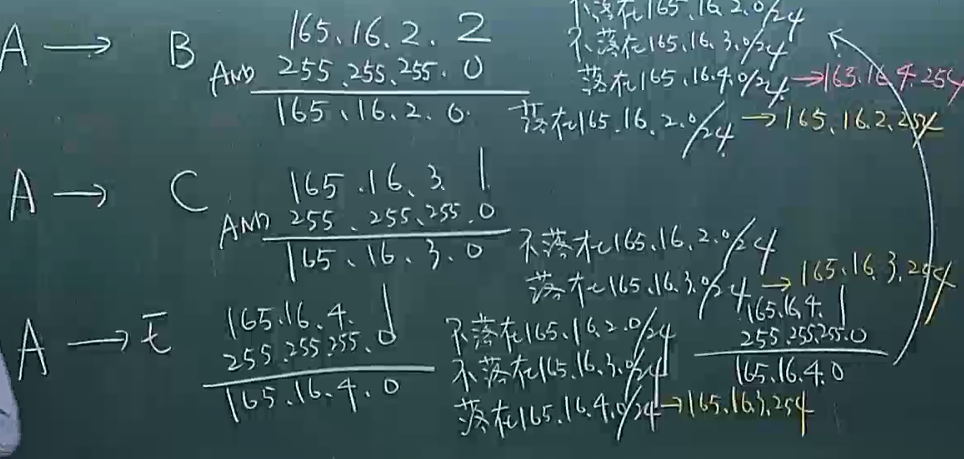 A → B
165.16.2.2
AND 255.255.255.0
165.16.2.0
落在165.16.2.0/24 → 165.16.2.254
不落在165.16.2.0/24
不落在165.16.3.0/24
落在165.16.4.0/24 → 165.16.4.254
A → C
165.16.3.1
AND 255.255.255.0
165.16.3.0
不落在165.16.2.0/24
落在165.16.3.0/24 → 165.16.3.254
A → E
165.16.4.1
255.255.255.0
165.16.4.0
不落在165.16.2.0/24
不落在165.16.3.0/24
落在165.16.4.0/24 → 165.16.3.254
165.16.4.1
255.255.255.0
165.16.4.0